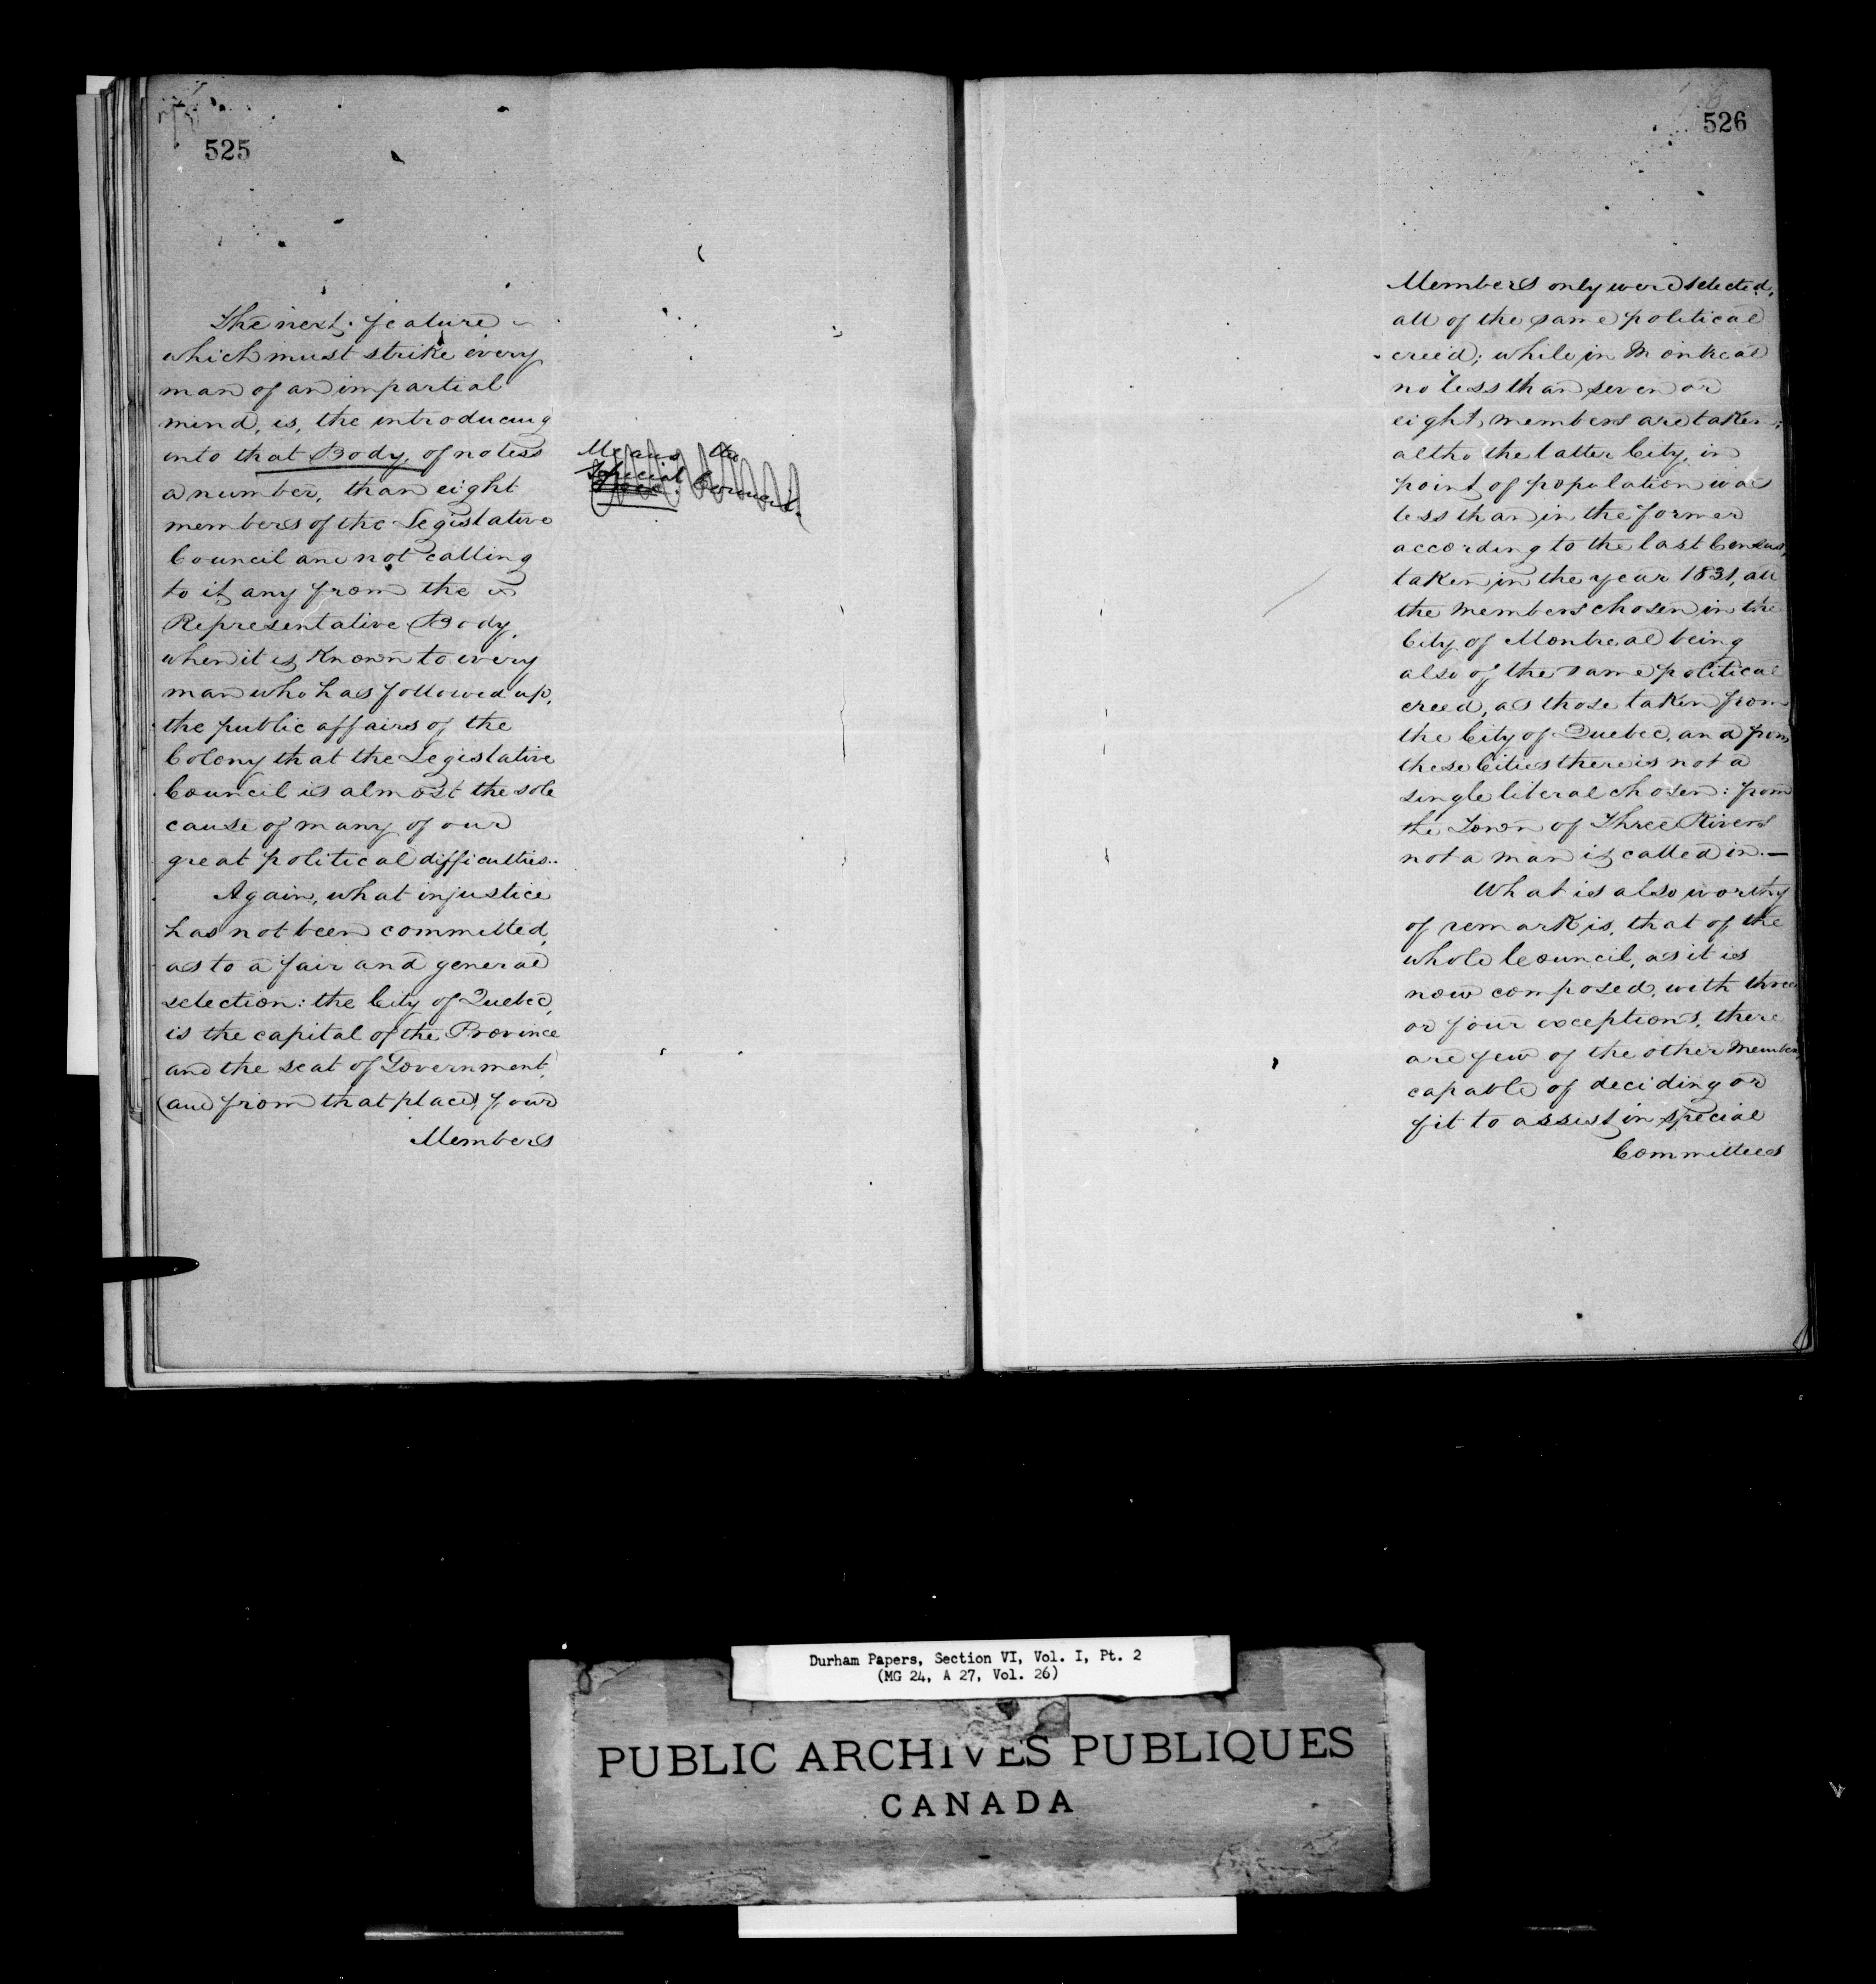 525
The next feature
which must strike every
man of an impartial
mind, is, the introducing
into that Body, of no less
a number, than eight
members of the Legislative
Council and not calling
to it any from the
Representative Body,
when it is Known to every
man who has followed up,
the public affairs of the
Colony that the Legislative
Council is almost the sole
cause of many of our
great political difficulties..
Again, what injustice
has not been committed,
as to a fair and general
selection: the City of Quebec,
is the capital of the Province
and the seat of Government,
(and from that place) four
Members
Means the
Special
Council.
526
Members only were selected,
all of the same political
creed; while in Montreal
no less than seven or
eight, members are taken;
altho the latter City, in
point of population was
less than in the former
according to the last Census,
taken in the year 1831, all
the Members chosen in the
City of Montreal being
also of the same political
creed, as those taken from
the City of Quebec, and from
these Cities there is not a
single liberal chosen: from
the Town of Three Rivers
not a man is called in.—
What is also worthy
of remark is, that of the
whole Council, as it is
now composed, with three
or four exceptions, there
are few of the other Members,
capable of deciding or
fit to assist in special
Committees
Durham Papers, Section VI, Vol. I, Pt. 2
(MG 24, A 27, Vol. 26)
PUBLIC ARCHIVES PUBLIQUES
CANADA